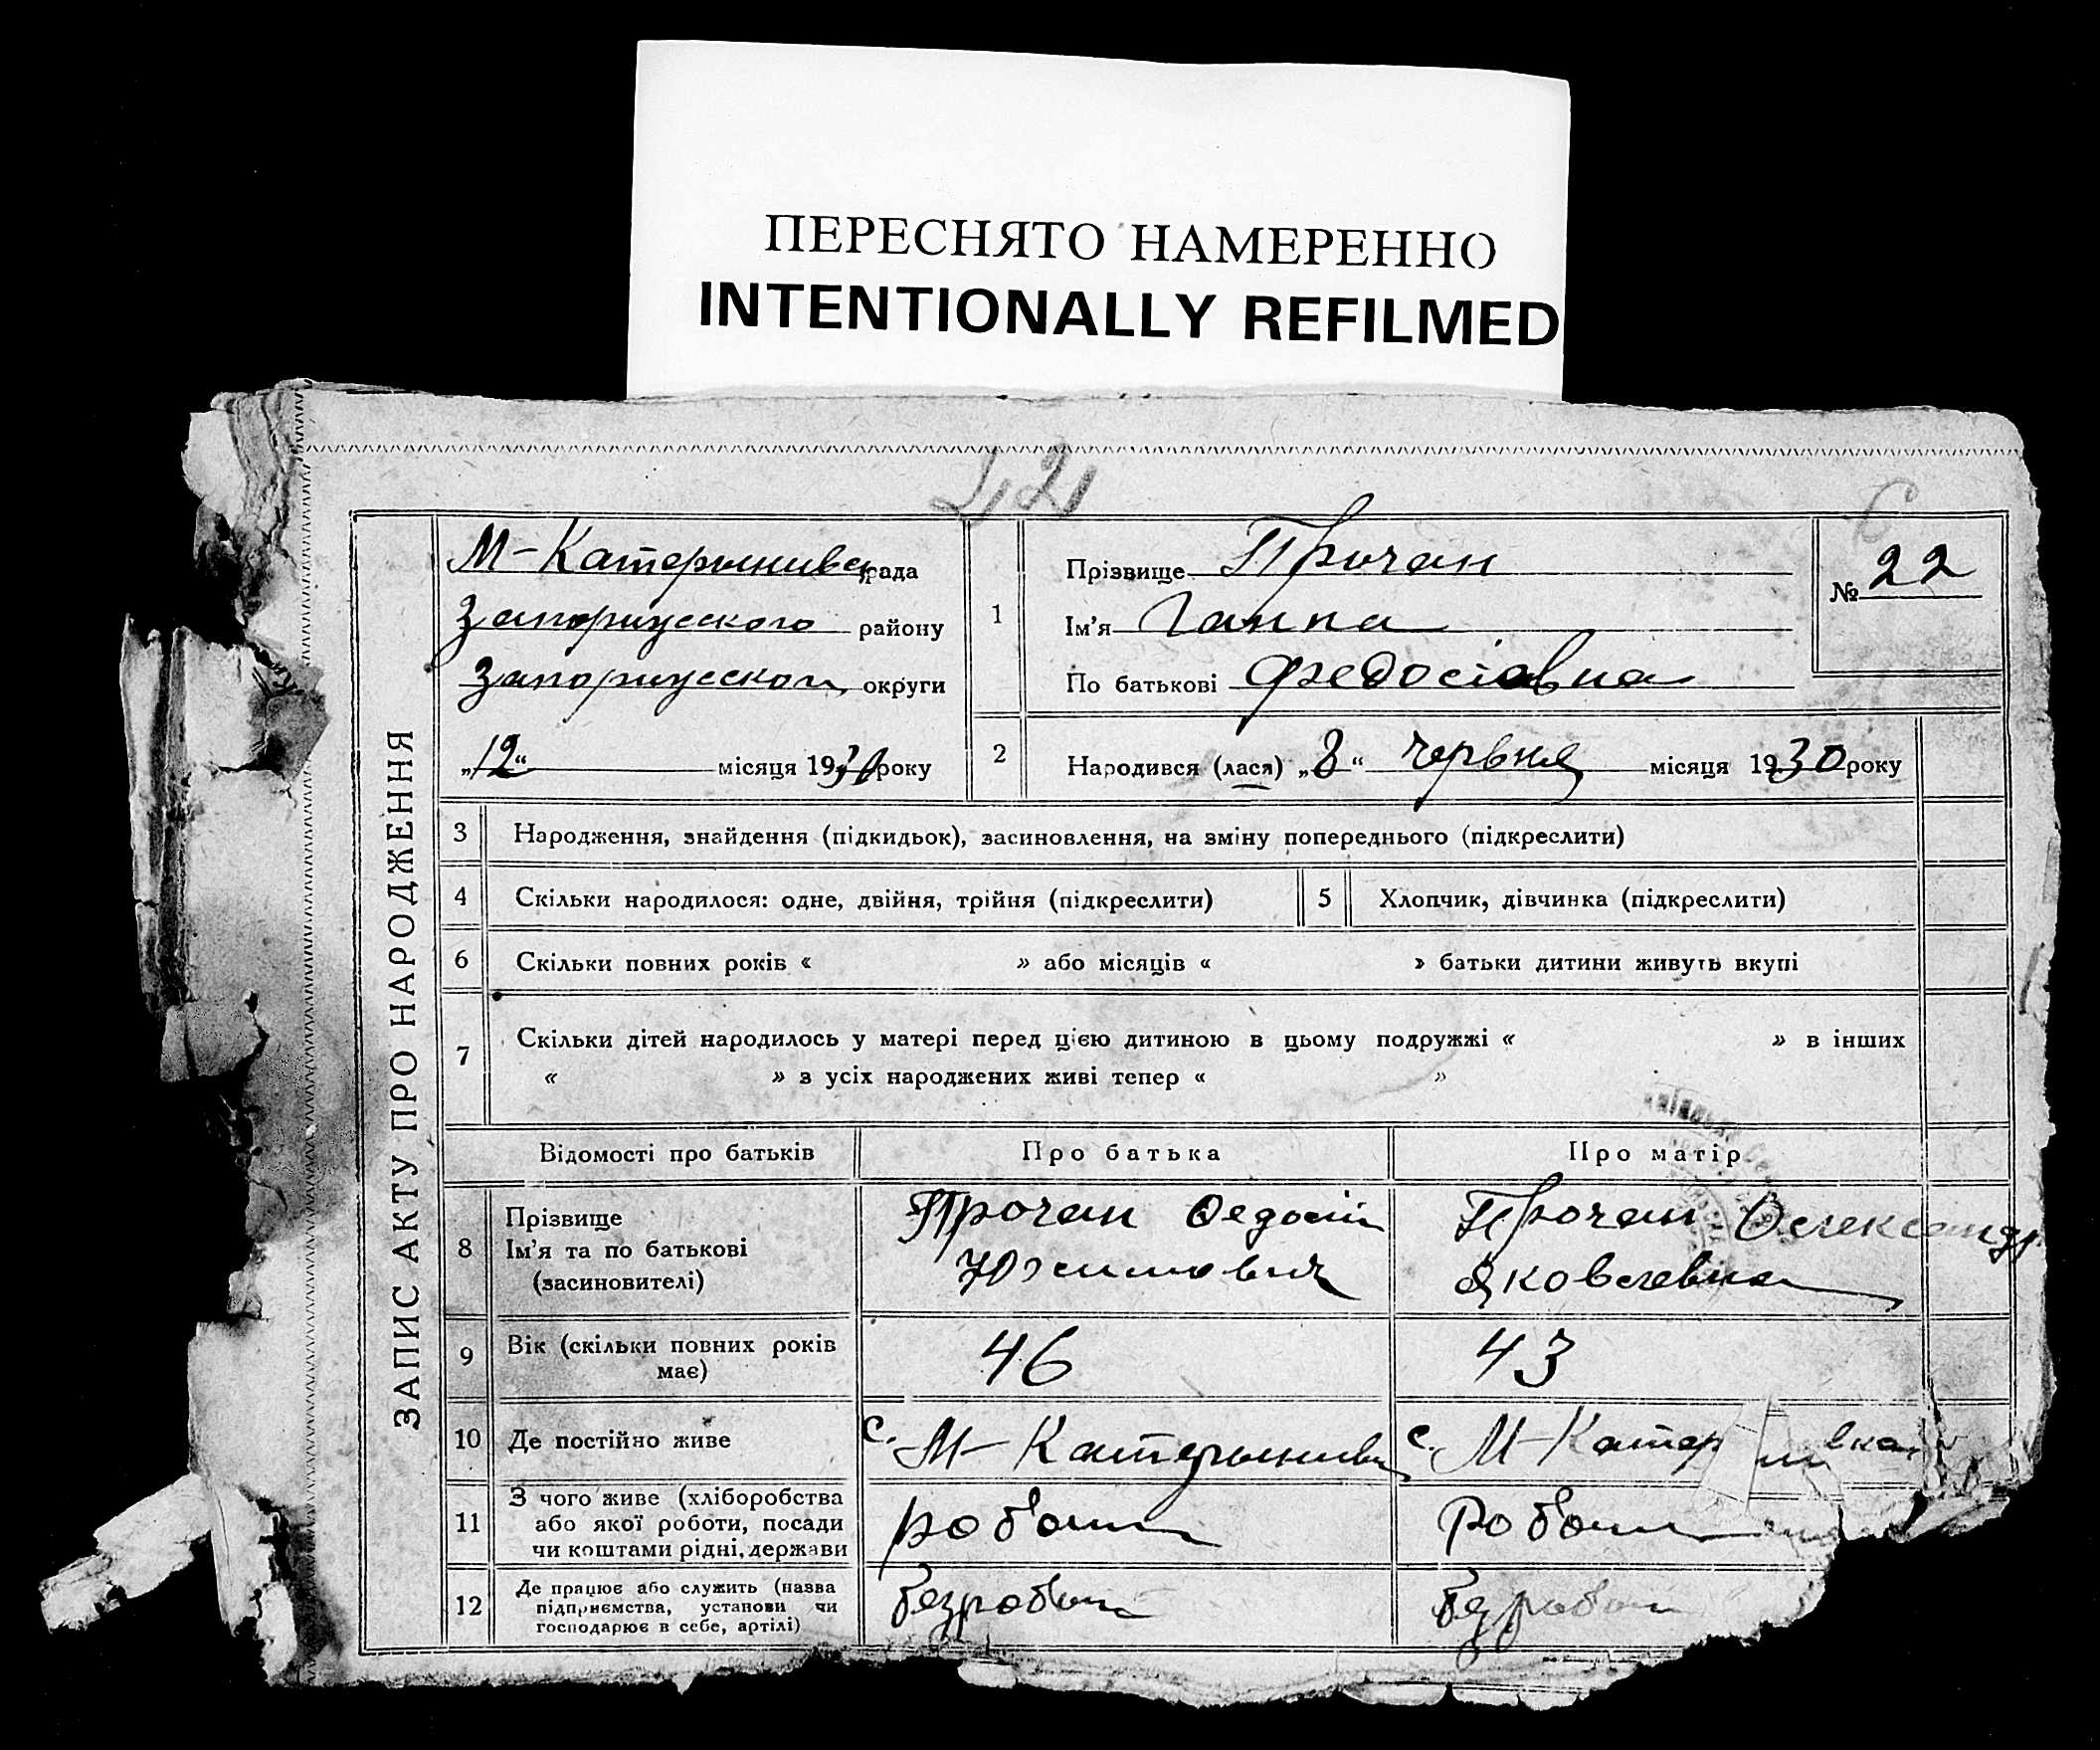 ПЕРЕСНЯТО НАМЕРЕННО
INTENTIONALLY REFILMED
ЗАПИС АКТУ ПРО НАРОДЖЕННЯ
М-Катеринивск рада
району
округи
„12“ місяця 1930 року
1
Прізвище Прочан
Ім'я Ганна
По батькові Федосіовна
№ 22
2
Народився (лася) „8“ червня місяця 1930 року
3 Народження, знайдення (підкидьок), засиновлення, на зміну попереднього (підкреслити)
4 Скільки народилося: одне, двійня, трійня (підкреслити) 5 Хлопчик, дівчинка (підкреслити)
6 Скільки повних років « » або місяців « » батьки дитини живуть вкупі
7 Скільки дітей народилось у матері перед цією дитиною в цьому подружжі « » в інших
« » з усіх народжених живі тепер « »
Відомості про батьків Про батька Про матір
8 Прізвище
Ім'я та по батькові
(засиновителі)
Прочан Федосій
Юхимович
Прочан Олександр
Яковлевна
9 Вік (скільки повних років
має)
46 43
10 Де постійно живе с. М-Катеринивк с. М-Катер вка
11 З чого живе (хліборобства
або якої роботи, посади
чи коштами рідні, держави
робот Робот
12 Де працює або служить (назва
підприємства, установи чи
господарює в себе, артілі)
безробот Безробот